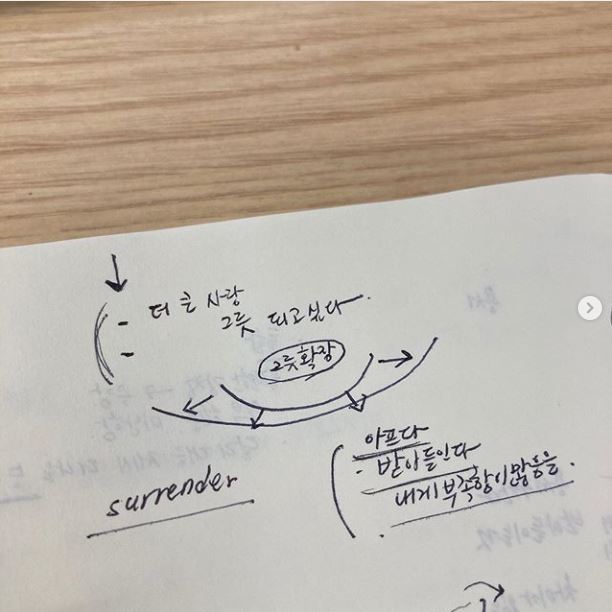 더 큰 사랑
그릇 되고싶다.
그릇확장
아프다
받아들인다
내게 부족함이많음을.
surrender